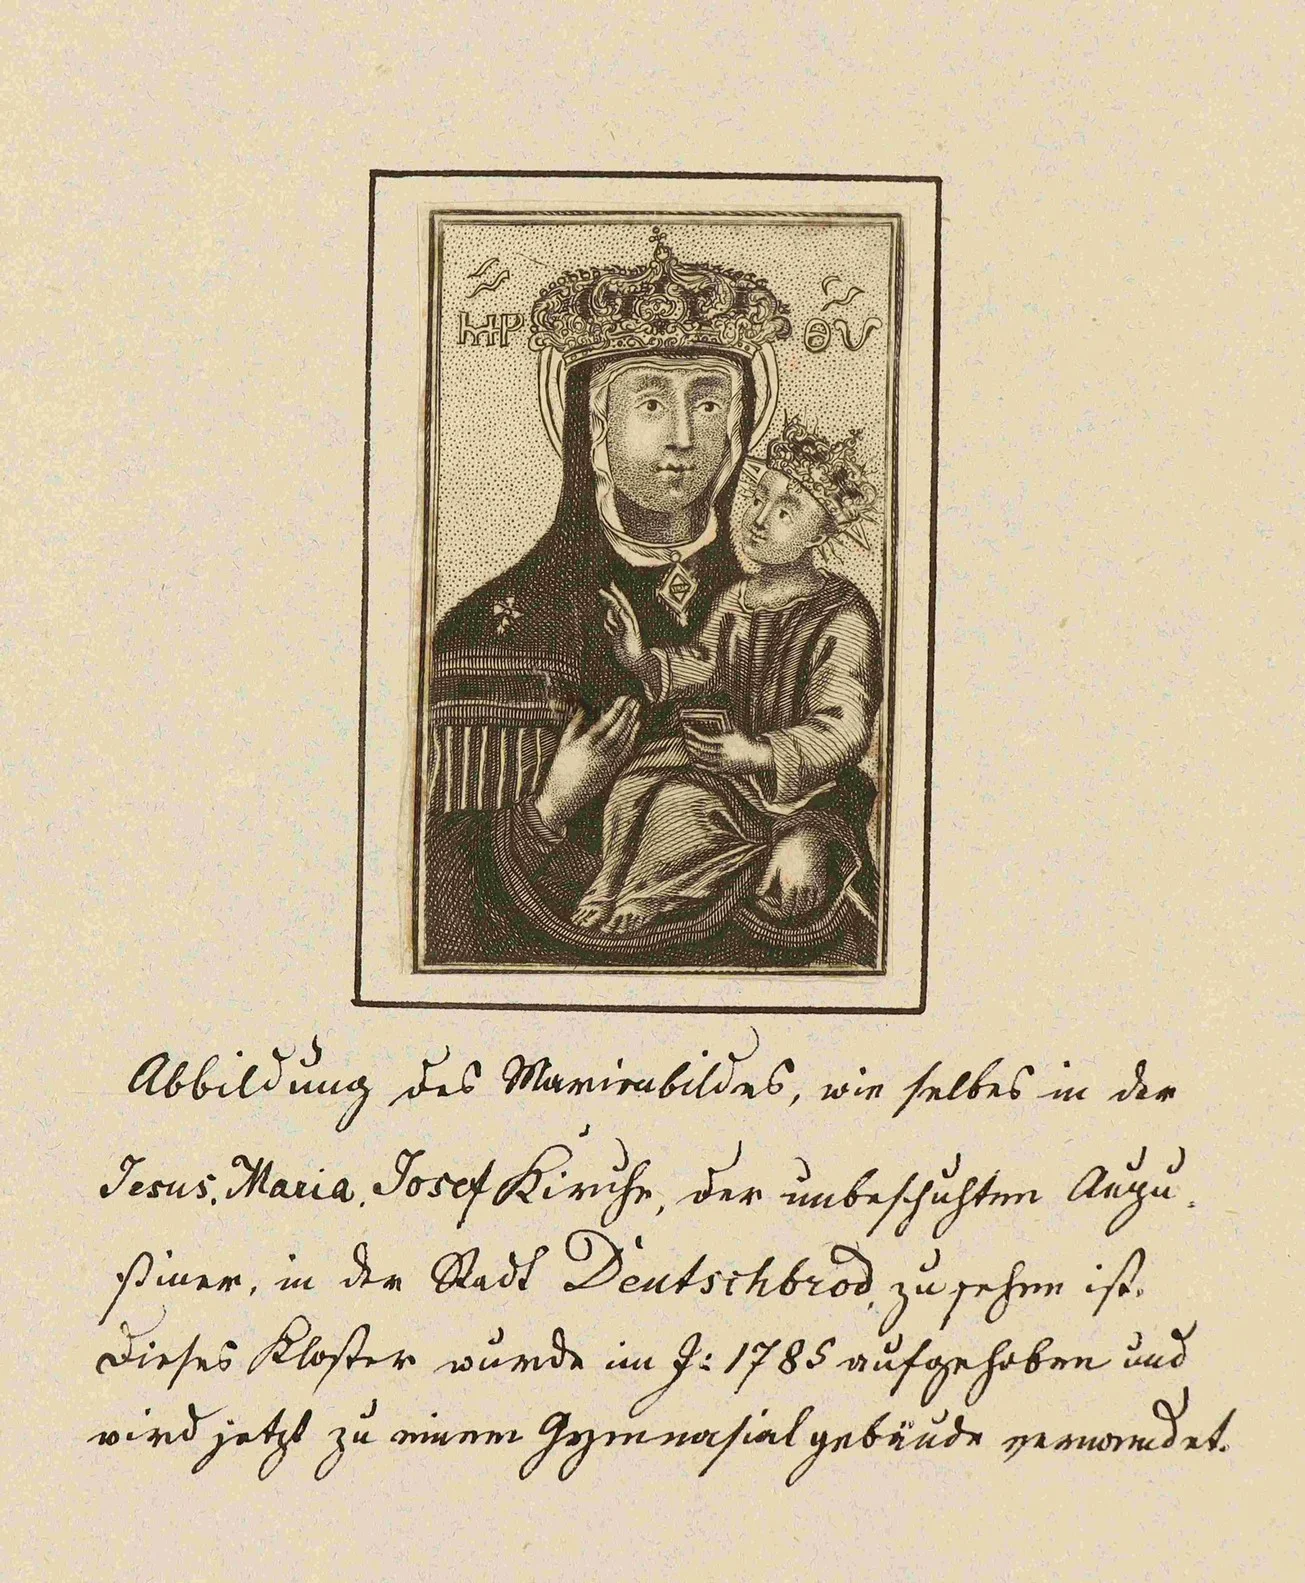 ΜΡ ΘΥ
Abbildung des Marienbildes, wie selbes in der
Jesus, Maria, Josef Kirche, der unbeschuhten Augu-
stiner, in der Stadt Deutschbrod, zu sehen ist.
Dieses Kloster wurde im J: 1785 aufgehoben und
wird jetzt zu einem Gymnasialgebäude verwendet.